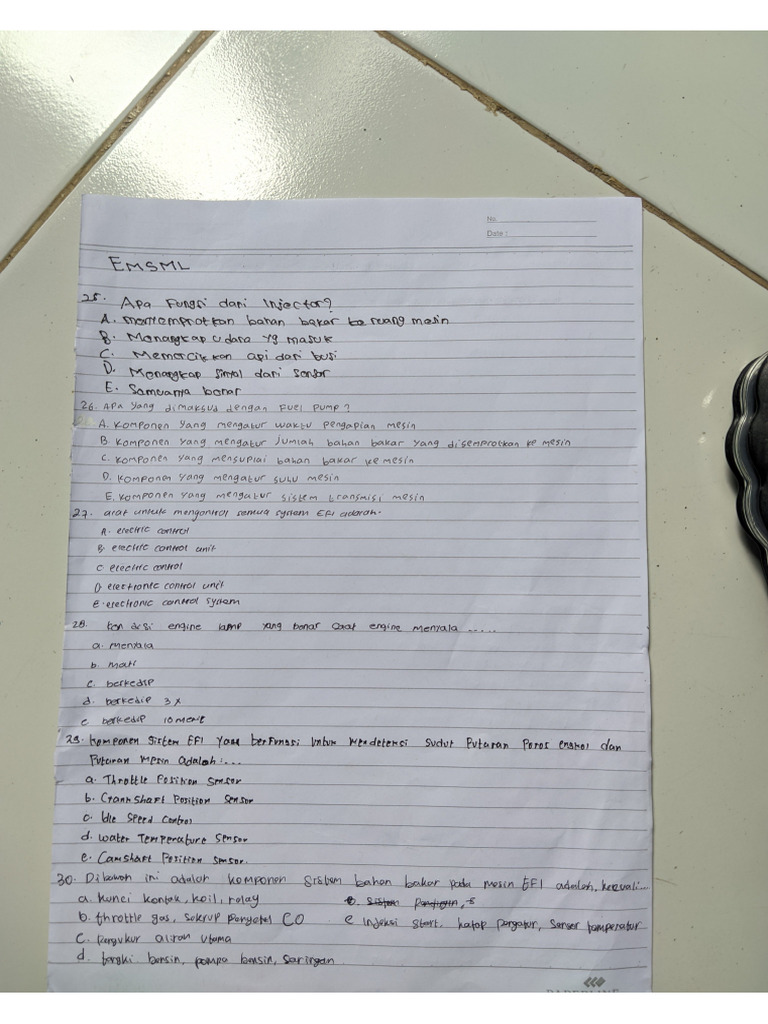 No.
Date :
EMSML
25. Apa Fungsi dari Injector?
A. menyemprotkan bahan bakar ke ruang mesin
B. Menangkap udara yg masuk
C. Memercikkan api dari busi
D. Menangkap sinyal dari sensor
E. Semuanya benar
26. Apa yang dimaksud dengan Fuel Pump?
A. Komponen yang mengatur waktu pengapian mesin
B Komponen yang mengatur jumlah bahan bakar yang disemprotkan ke mesin
C. Komponen yang mensuplai bahan bakar ke mesin
D. Komponen yang mengatur suhu mesin
E. Komponen yang mengatur sistem transmisi mesin
27. alat untuk mengontrol semua system EFI adalah.
A. electric control
B. electric control unit
C electric control
D electronic control unit
E. electronic control system
28. kondisi engine lamp yang benar saat engine menyala .....
a. menyala
b. mati
c. berkedip
d. berkedip 3x
e berkedip 10 menit
29. Komponen Sistem EFI yang berfungsi untuk mendeteksi sudut Putaran Poros engkol dan
Putaran mesin adalah....
a. Throttle Position Sensor
b. Crankshaft Position Sensor
c. Idle Speed Control
d. Water Temperature Sensor
e. Camshaft Position Sensor.
30. Dibawah ini adalah komponen Sistem bahan bakar pada mesin EFI adalah, kecuali...
a. kunci kontak, koil, relay
b. throttle gas, sekrup penyetel CO e injeksi start, katup pengatur, sensor temperatur
c. pengukur aliran utama
d. tangki bensin, pompa bensin, saringan
PAPERLINE